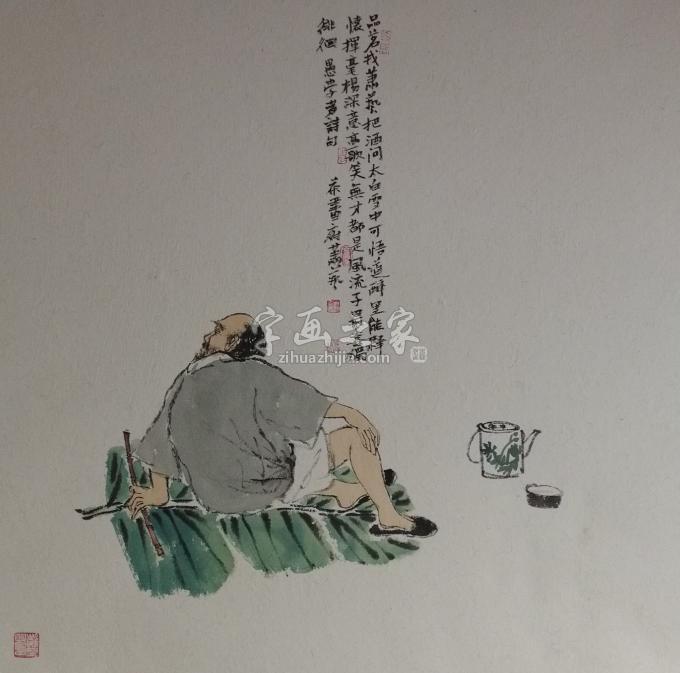 品茗我萧艺把酒问太白雪中可悟道醉里能釋
懷揮毫楊深意高歌笑無才都是風流子
徘徊 愚学者詩句
字画之家
zihuazhijia.com